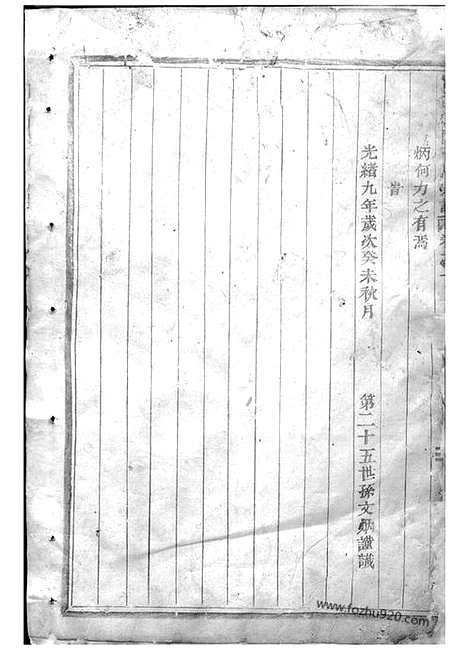 炳何力之有焉
旹
光緒九年歲次癸未秋月
第二十五世孫文炳謹識
www.fozhu920.com